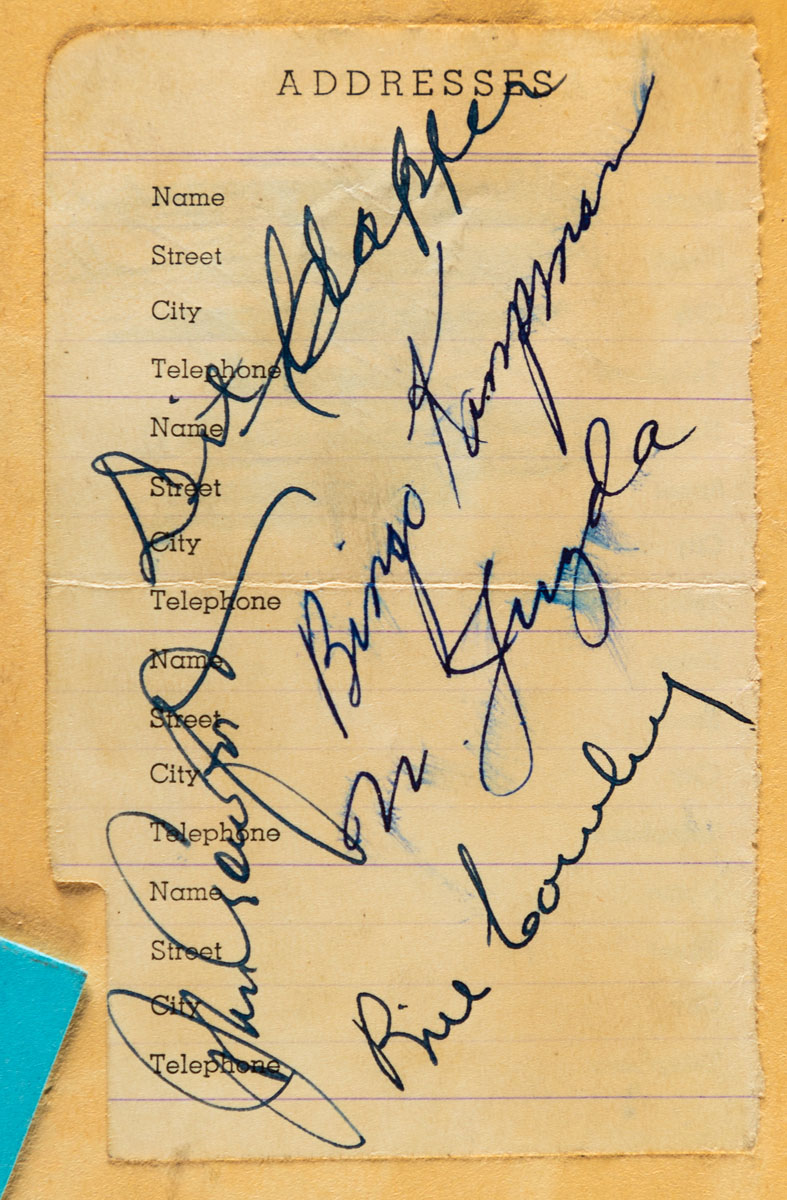 ADDRESSES
Name
Street
City
Telephone
Name
Street
City
Telephone
Name
Street
City
Telephone
Name
Street
City
Telephone
Dit Clapper
Bingo Kampman
M. Gruzda
Bill Cowley
Jack Crawford